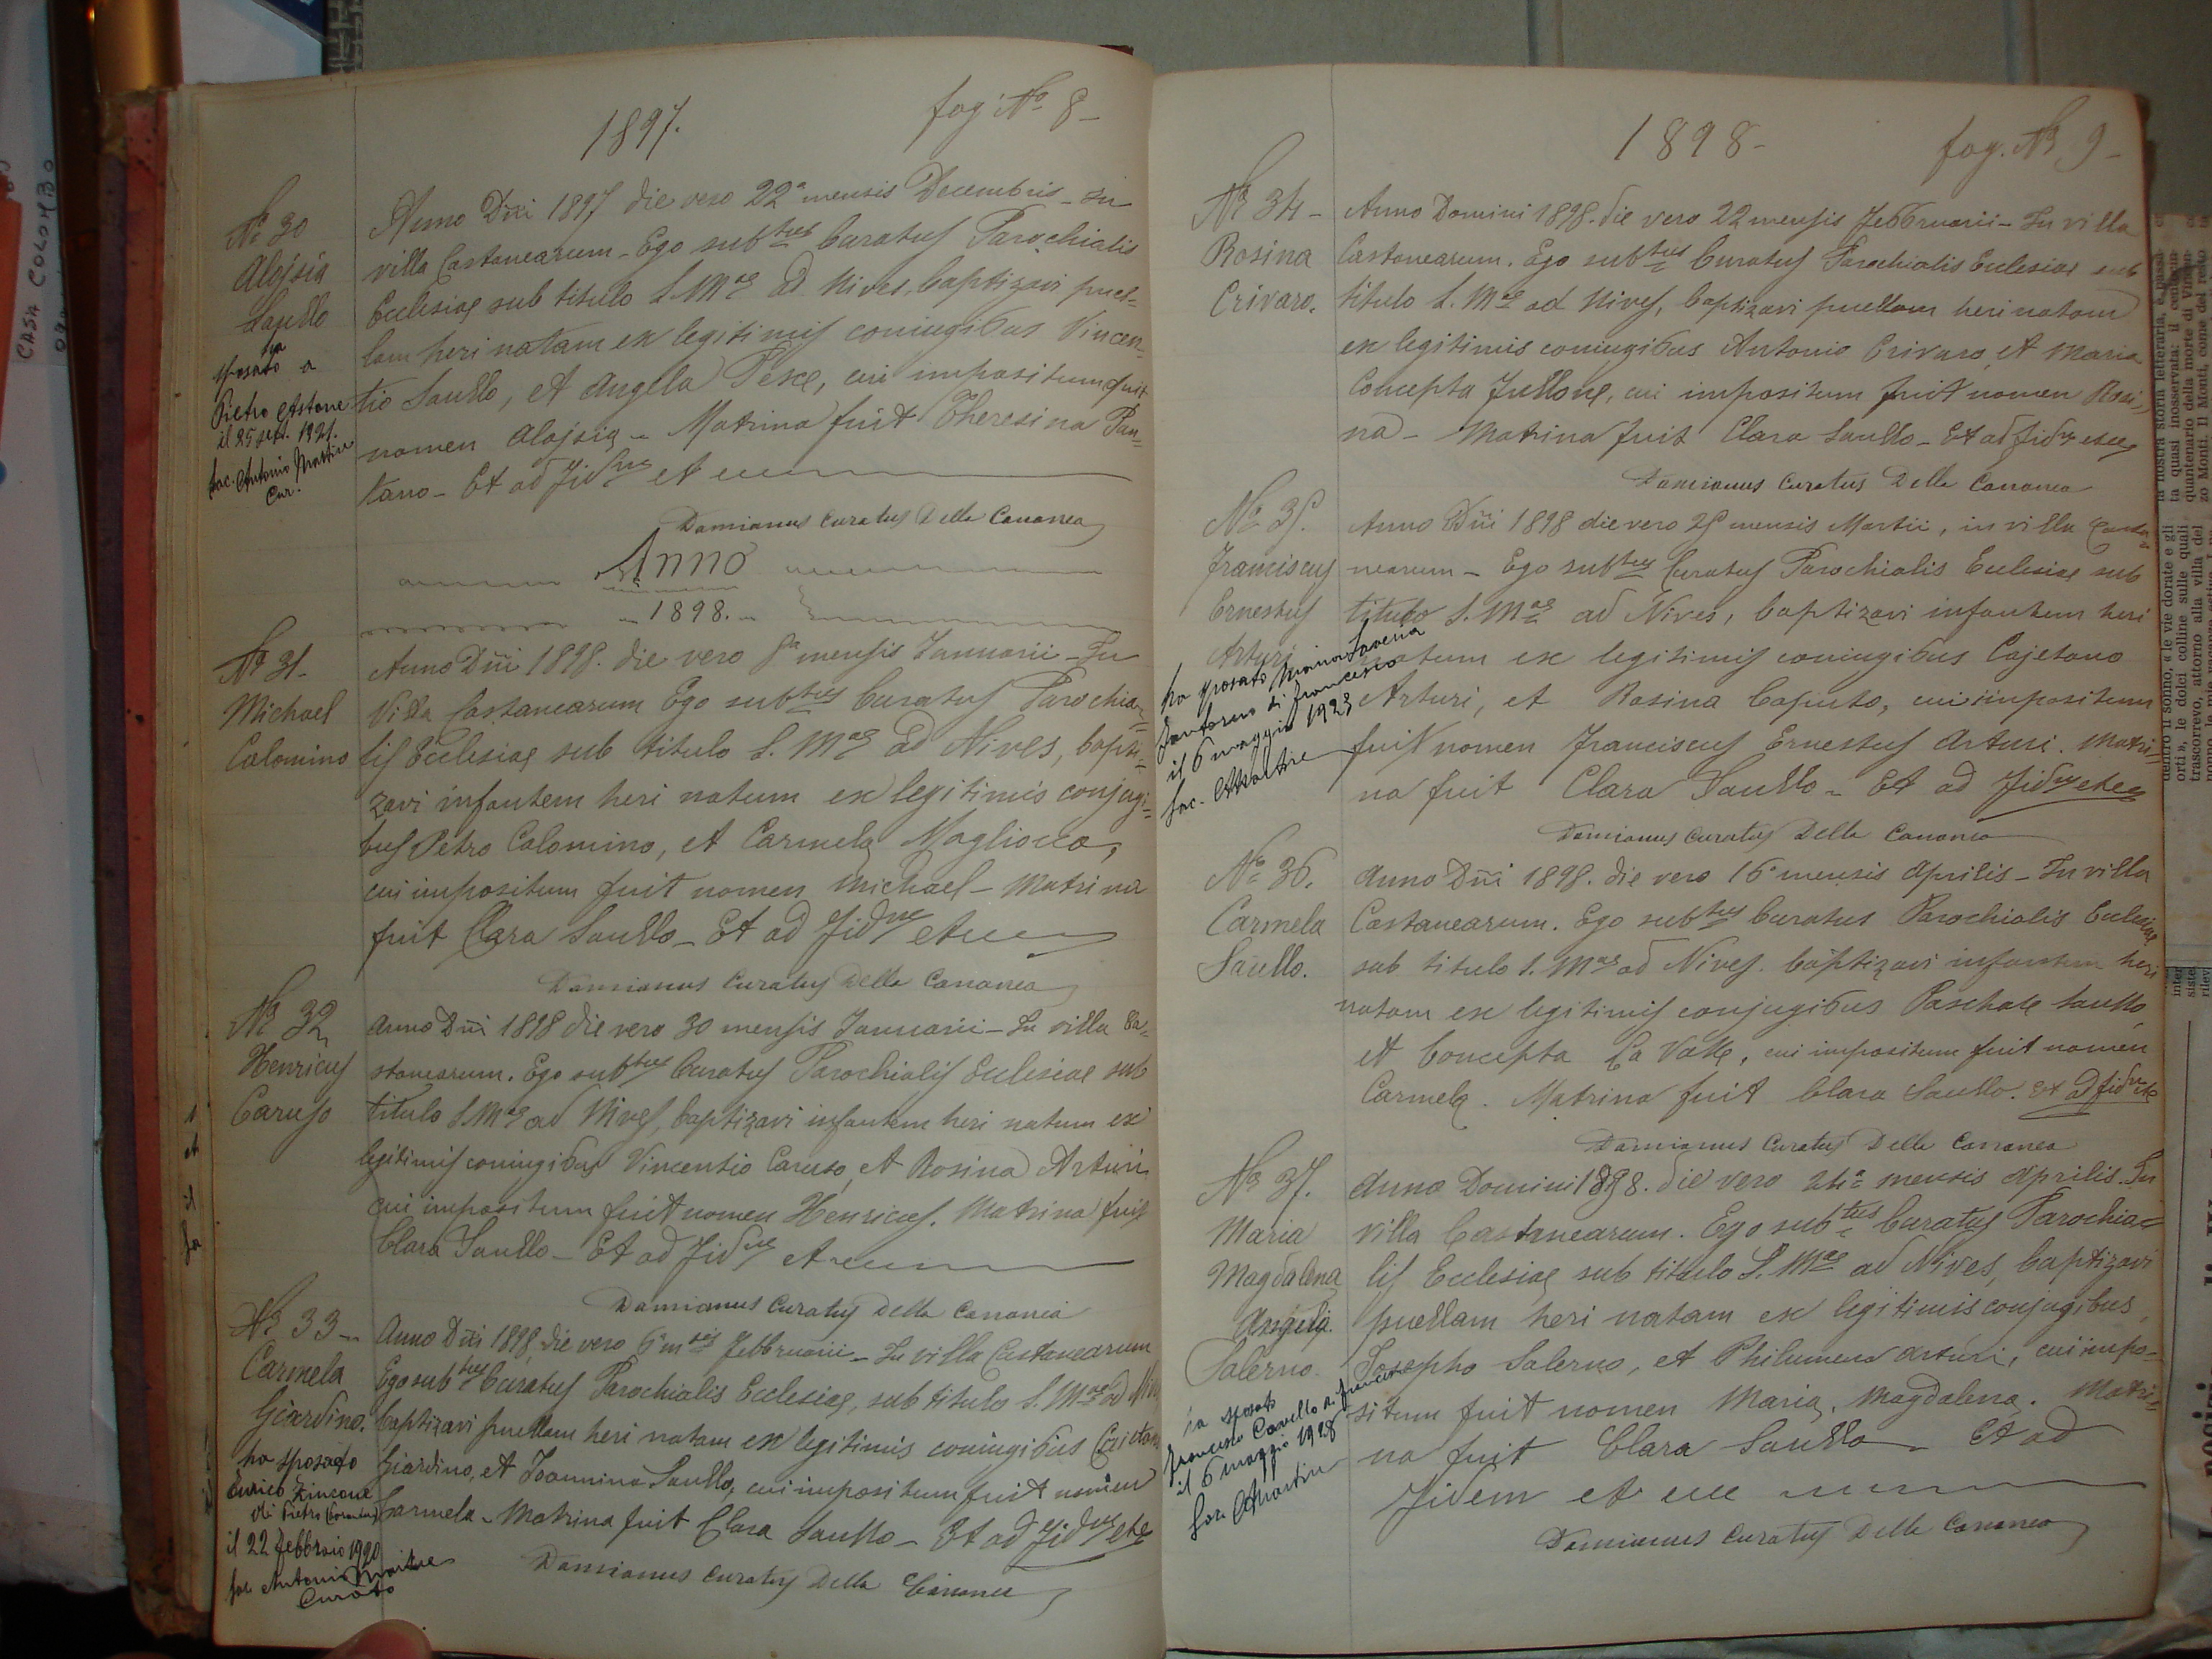 1897.
fog. No 8-
No 30
Aloisia
Saullo
ha
sposato a
Pietro Astone
il 25 sett. 1921.
Sac. Antonio Mastrie
Cur.
Anno Dni 1897 die vero 22a mensis Decembris - In
villa Castanearum - Ego subtus Curatus Parochialis
Ecclesiae sub titulo S. Mae ad Nives, baptizavi puel-
lam heri natam ex legitimis coniugibus Vincen-
tio Saullo, et Angela Pesce, cui impositum fuit
nomen Aloisia - Matrina fuit Theresina Pan-
tano - Et ad Fidue et
Damianus Curatus Della Cananea
Anno
- 1898. -
No 31-
Michael
Calomino
Anno Dni 1898. die vero mensis Januarii - In
Villa Castanearum Ego subtus Curatus Parochia=
lis Ecclesiae sub titulo S. Mae ad Nives, bapti=
zavi infantem heri natum ex legitimis conjugi=
bus Petro Calomino, et Carmela Magliocco,
cui impositum fuit nomen Michael - Matrina
fuit Clara Saullo - Et ad Fidue et
Damianus Curatus Della Cananea
No 32
Henricus
Caruso
Anno Dni 1898 die vero 30 mensis Januarii - In villa Ca-
stanearum. Ego subtus Curatus Parochialis Ecclesiae sub
titulo S. Mae ad Nives, baptizavi infantem heri natum ex
legitimis coniugibus Vincentio Caruso, et Rosina Arturi
cui impositum fuit nomen Henricus. Matrina fuit
Clara Saullo - Et ad Fidue et
Damianus Curatus Della Cananea
No 33-
Carmela
Giardino.
ha sposato
Enrico Zincone
di Pietro
il 22 febbraio 1920
Sac Antonio
Curato
Anno Dni 1898, die vero 6a msis Febbruarii - In villa Castanearum
Ego subtus Curatus Parochialis Ecclesiae, sub titulo S. Mae ad
baptizavi puellam heri natam ex legitimis coniugibus
Giardino, et Joannina Saullo, cui impositum fuit nomen
Carmela - Matrina fuit Clara Saullo - Et ad Fidue etc
Damianus Curatus Della Cananea
1898-
fog. No 9-
No 34-
Rosina
Crivaro.
Anno Domini 1898. die vero 22 mensis Febbruarii - In villa
Castanearum. Ego subtus Curatus Parochialis Ecclesiae sub
titulo S. Mae ad Nives, baptizavi puellam heri natam
ex legitimis coniugibus Antonio Crivaro, et Maria
Concepta Fullone, cui impositum fuit nomen Rosi=
na - Matrina fuit Clara Saullo - Et ad Fidue etc
Damianus Curatus Della Cananea
No 35.
Franciscus
Ernestus
Arturi
ha sposato Maria Saveria
Santoro di Francesco
il 6 maggio 1923
Sac.
Anno Dni 1898 die vero mensis Martii, in villa Casta=
nearum - Ego subtus Curatus Parochialis Ecclesiae sub
titulo S. Mae ad Nives, baptizavi infantem heri
natum ex legitimis coniugibus Cajetano
Arturi, et Rosina Caputo, cui impositum
fuit nomen Franciscus Ernestus Arturi. Matri=
na fuit Clara Saullo - Et ad Fidue etc
Damianus Curatus Della Cananea
No 36.
Carmela
Saullo.
Anno Dni 1898. die vero 16a mensis Aprilis - In villa
Castanearum. Ego subtus Curatus Parochialis Ecclesiae
sub titulo S. Mae ad Nives. baptizavi infantem heri
natam ex legitimis conjugibus Paschale Saullo,
et Concepta La Valle, cui impositum fuit nomen
Carmela. Matrina fuit Clara Saullo. Et ad fidue etc
Damianus Curatus Della Cananea
No 37.
Maria
Magdalena
Angela.
Salerno.
ha sposato
Francesco di Francesco
il 6 maggio 1928
Anno Domini 1898. die vero 24a mensis Aprilis. In
villa Castanearum. Ego subtus Curatus Parochia=
lis Ecclesiae sub titulo S. Mae ad Nives, baptizavi
puellam heri natam ex legitimis conjugibus,
Josepho Salerno, et Philumena Arturi, cui impo-
situm fuit nomen Maria, Magdalena. Matri=
na fuit Clara Saullo - Et ad
Fidem et
Damianus Curatus Della Cananea
CASA COLOMBO